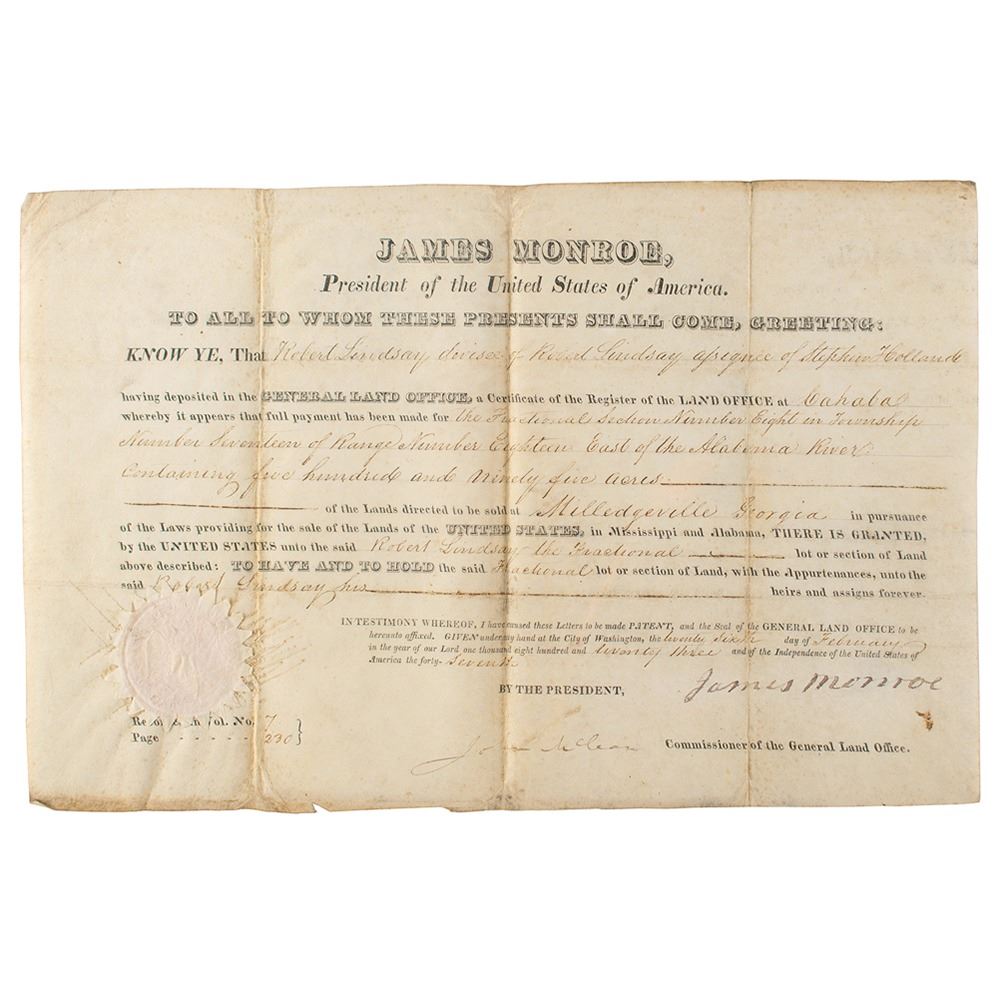 JAMES MONROE,
President of the United States of America.
TO ALL TO WHOM THESE PRESENTS SHALL COME, GREETING:
KNOW YE, That Robert Lindsay devisee of Robert Lindsay assignee of Stephen Holland
having deposited in the GENERAL LAND OFFICE, a Certificate of the Register of the LAND OFFICE at Cahaba
whereby it appears that full payment has been made for the Fractional Section Number Eight in Township
Number Seventeen of Range Number Eighteen East of the Alabama River
Containing five hundred and ninety five acres
of the Lands directed to be sold at Milledgeville Georgia in pursuance
of the Laws providing for the sale of the Lands of the UNITED STATES, in Mississippi and Alabama, THERE IS GRANTED,
by the UNITED STATES unto the said Robert Lindsay the Fractional lot or section of Land
above described: TO HAVE AND TO HOLD the said Fractional lot or section of Land, with the Appurtenances, unto the
said Robert Lindsay his heirs and assigns forever.
IN TESTIMONY WHEREOF, I have caused these Letters to be made PATENT, and the Seal of the GENERAL LAND OFFICE to be
hereunto affixed. GIVEN under my hand at the City of Washington, the twenty sixth day of February
in the year of our Lord one thousand eight hundred and twenty three and of the Independence of the United States of
America the forty-seventh
BY THE PRESIDENT, James Monroe
John McLean Commissioner of the General Land Office.
Vol. No. 7
Page - - - - - 230 }